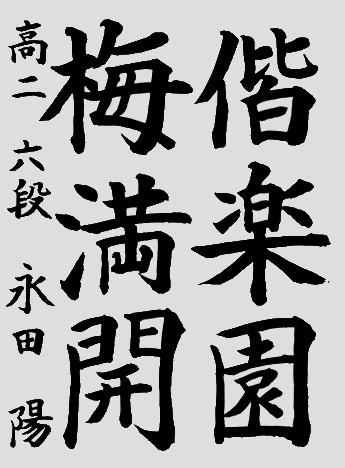 偕楽園
梅満開
高二 六段 永田 陽